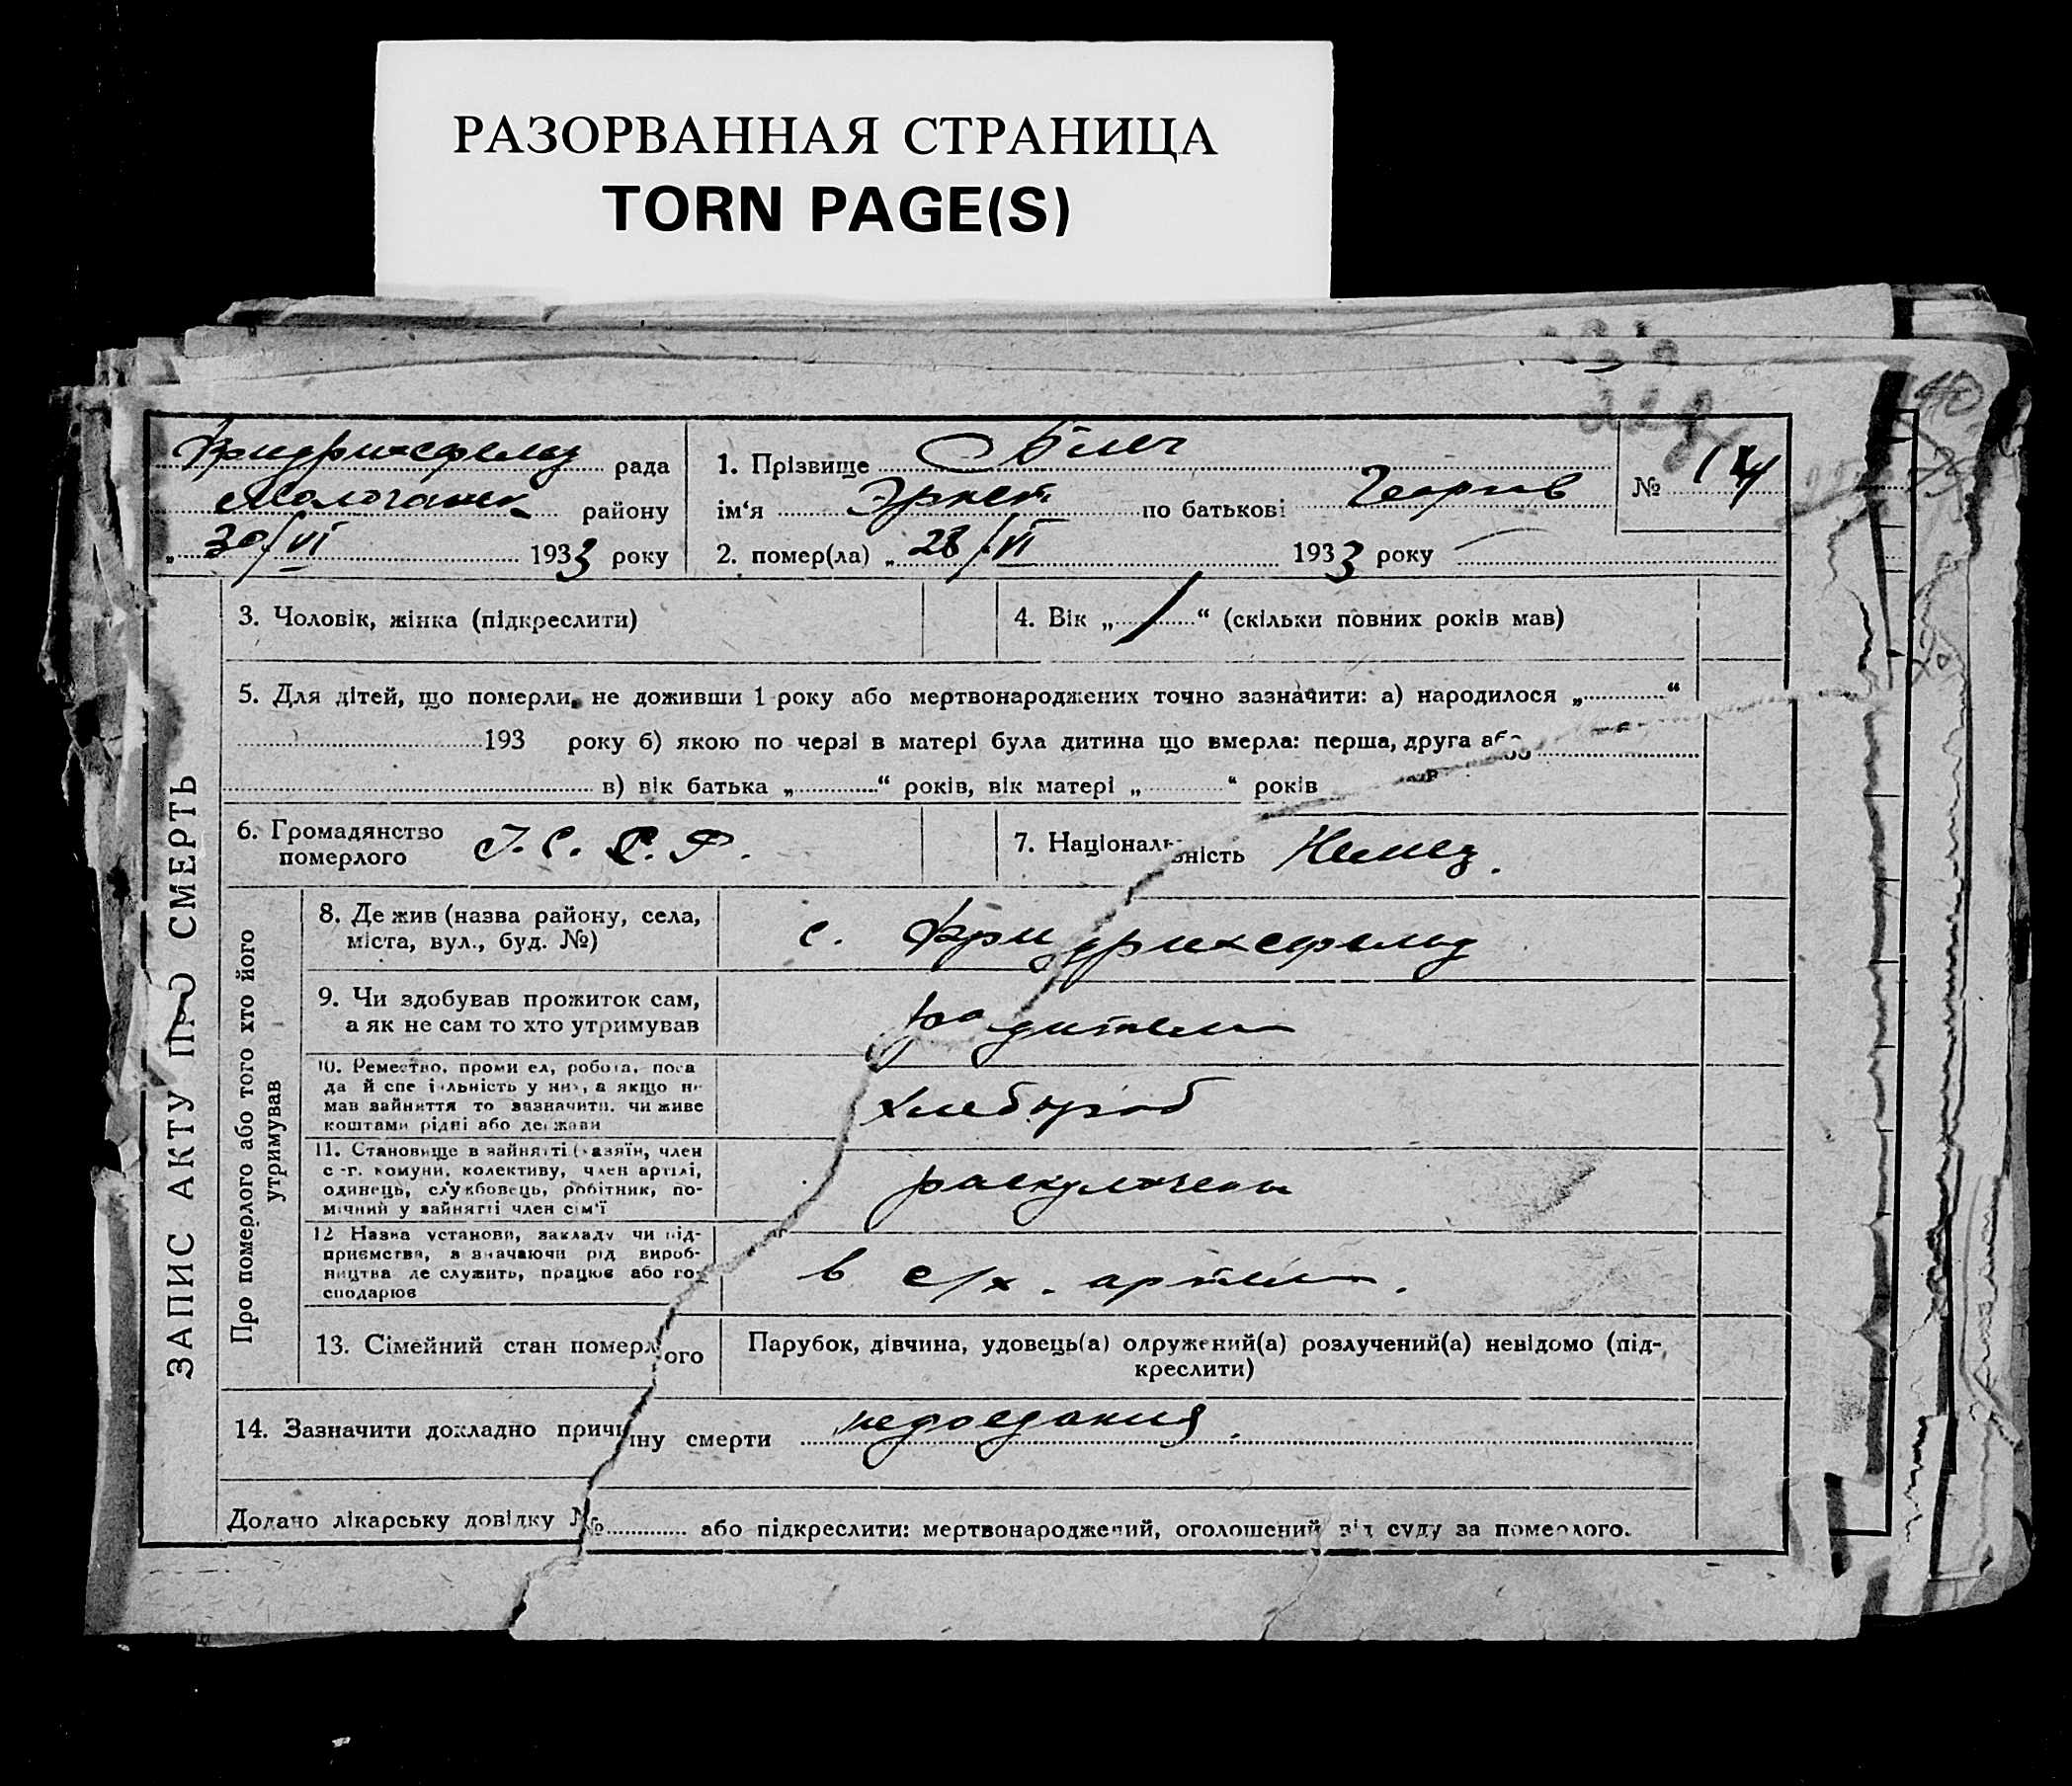 РАЗОРВАННАЯ СТРАНИЦА
TORN PAGE(S)
Фридрихсфельд рада
Молочанск району
„ 30/VI 1933 року
1. Прізвище
ім‘я Эрнст по батькові Георгов
2. помер(ла) „ 28/VI 1933 року
№ 14
ЗАПИС АКТУ ПРО СМЕРТЬ
3. Чоловік, жінка (підкреслити)
4. Вік „ 1 “ (скільки повних років мав)
5. Для дітей, що померли, не доживши 1 року або мертвонароджених точно зазначити: а) народилося „ “
193 року б) якою по черзі в матері була дитина що вмерла: перша, друга або
в) вік батька „ “ років, вік матері „ “ років
6. Громадянство
померлого
7. Національність Немец.
Про померлого або того хто його
утримував
8. Де жив (назва району, села,
міста, вул., буд. №)
с. Фридрихсфельд
9. Чи здобував прожиток сам,
а як не сам то хто утримував
родители
10. Ремество, промисел, робота, поса
да й спеціяльність у них, а якщо не
мав зайняття то зазначити, чи живе
коштами рідні або держави
хлебороб
11. Становище в зайнятті (хазяїн, член
с.-г. комуни, колективу, член артілі,
одинець, службовець, робітник, по-
мічний у зайнятті член сім'ї
раскулачены
12 Назва установи, закладу чи під-
приємства, зазначаючи рід вироб-
ництва де служить, працює або го-
сподарює
в с/х. артели.
13. Сімейний стан померлого
Парубок, дівчина, удовець(а) одружений(а) розлучений(а) невідомо (під-
креслити)
14. Зазначити докладно причину смерти недоедания.
Додано лікарську довідку № або підкреслити: мертвонароджений, оголошений від суду за померлого.